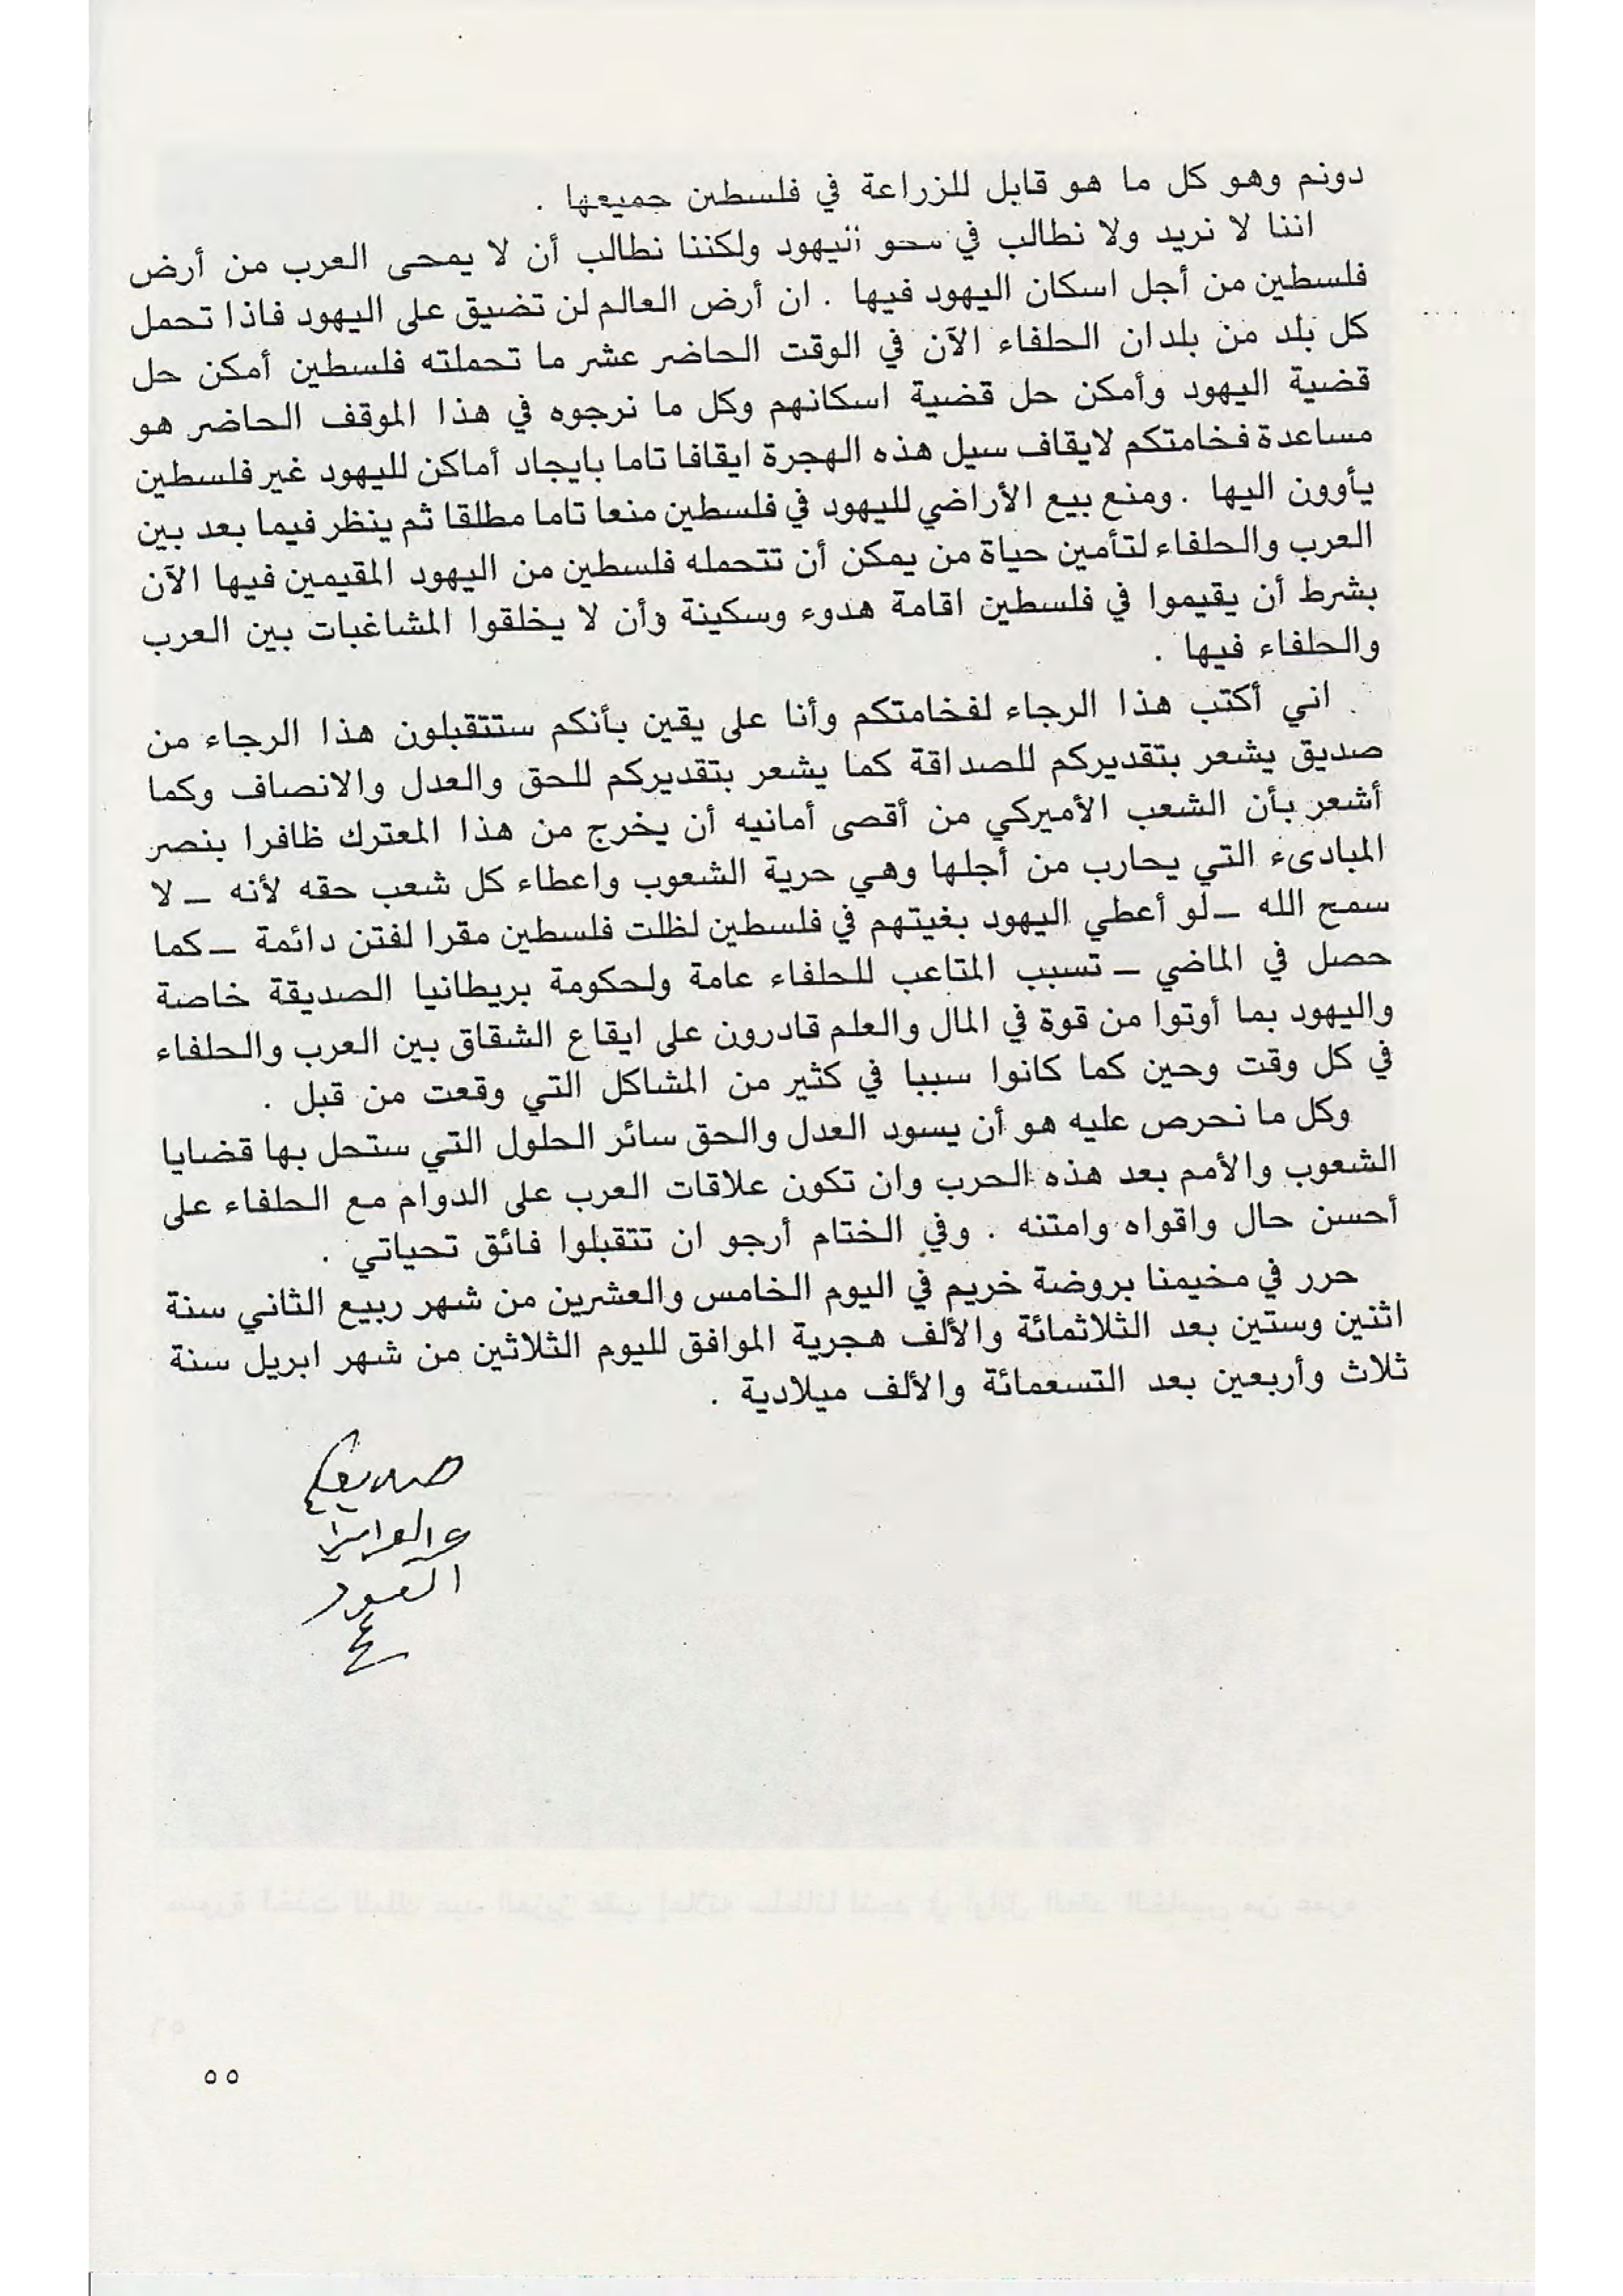 دونم وهو كل ما هو قابل للزراعة في فلسطين جميعها .
اننا لا نريد ولا نطالب في محو اليهود ولكننا نطالب أن لا يمحى العرب من أرض
فلسطين من أجل اسكان اليهود فيها . ان أرض العالم لن تضيق على اليهود فاذا تحمل
كل بلد من بلدان الحلفاء الآن في الوقت الحاضر عشر ما تحملته فلسطين أمكن حل
قضية اليهود وأمكن حل قضية اسكانهم وكل ما نرجوه في هذا الموقف الحاضر هو
مساعدة فخامتكم لايقاف سيل هذه الهجرة ايقافا تاما بايجاد أماكن لليهود غير فلسطين
يأوون اليها . ومنع بيع الأراضي لليهود في فلسطين منعا تاما مطلقا ثم ينظر فيما بعد بين
العرب والحلفاء لتأمين حياة من يمكن أن تتحمله فلسطين من اليهود المقيمين فيها الآن
بشرط أن يقيموا في فلسطين اقامة هدوء وسكينة وأن لا يخلقوا المشاغبات بين العرب
والحلفاء فيها .
اني أكتب هذا الرجاء لفخامتكم وأنا على يقين بأنكم ستتقبلون هذا الرجاء من
صديق يشعر بتقديركم للصداقة كما يشعر بتقديركم للحق والعدل والانصاف وكما
أشعر بأن الشعب الأميركي من أقصى أمانيه أن يخرج من هذا المعترك ظافرا بنصر
المبادىء التي يحارب من أجلها وهي حرية الشعوب واعطاء كل شعب حقه لأنه – لا
سمح الله – لو أعطي اليهود بغيتهم في فلسطين لظلت فلسطين مقرا لفتن دائمة – كما
حصل في الماضي – تسبب المتاعب للحلفاء عامة ولحكومة بريطانيا الصديقة خاصة
واليهود بما أوتوا من قوة في المال والعلم قادرون على ايقاع الشقاق بين العرب والحلفاء
في كل وقت وحين كما كانوا سببا في كثير من المشاكل التي وقعت من قبل .
وكل ما نحرص عليه هو أن يسود العدل والحق سائر الحلول التي ستحل بها قضايا
الشعوب والأمم بعد هذه الحرب وان تكون علاقات العرب على الدوام مع الحلفاء على
أحسن حال واقواه وامتنه . وفي الختام أرجو ان تتقبلوا فائق تحياتي .
حرر في مخيمنا بروضة خريم في اليوم الخامس والعشرين من شهر ربيع الثاني سنة
اثنين وستين بعد الثلاثمائة والألف هجرية الموافق لليوم الثلاثين من شهر ابريل سنة
ثلاث وأربعين بعد التسعمائة والألف ميلادية .
صديقكم
السعود
٥٥